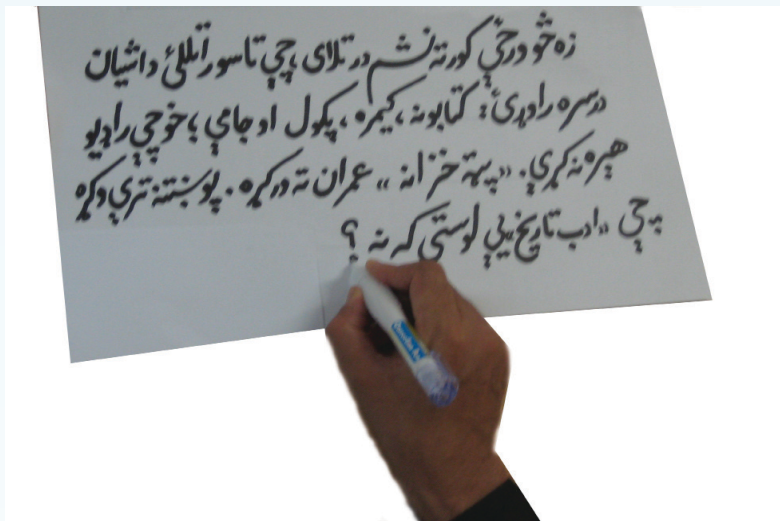 زه خو درځې کورته نشم درتلای، چې تاسو راتللئ دا شیان
درسره راوړئ: کتابونه، کیمره، پکول او جامې؛ خو چې راډیو
هېره نه کړې. «پټه خزانه» عمران ته ورکړه. پوښتنه ترې وکړه
چې «ادب تاریخ یې لوستی که نه؟